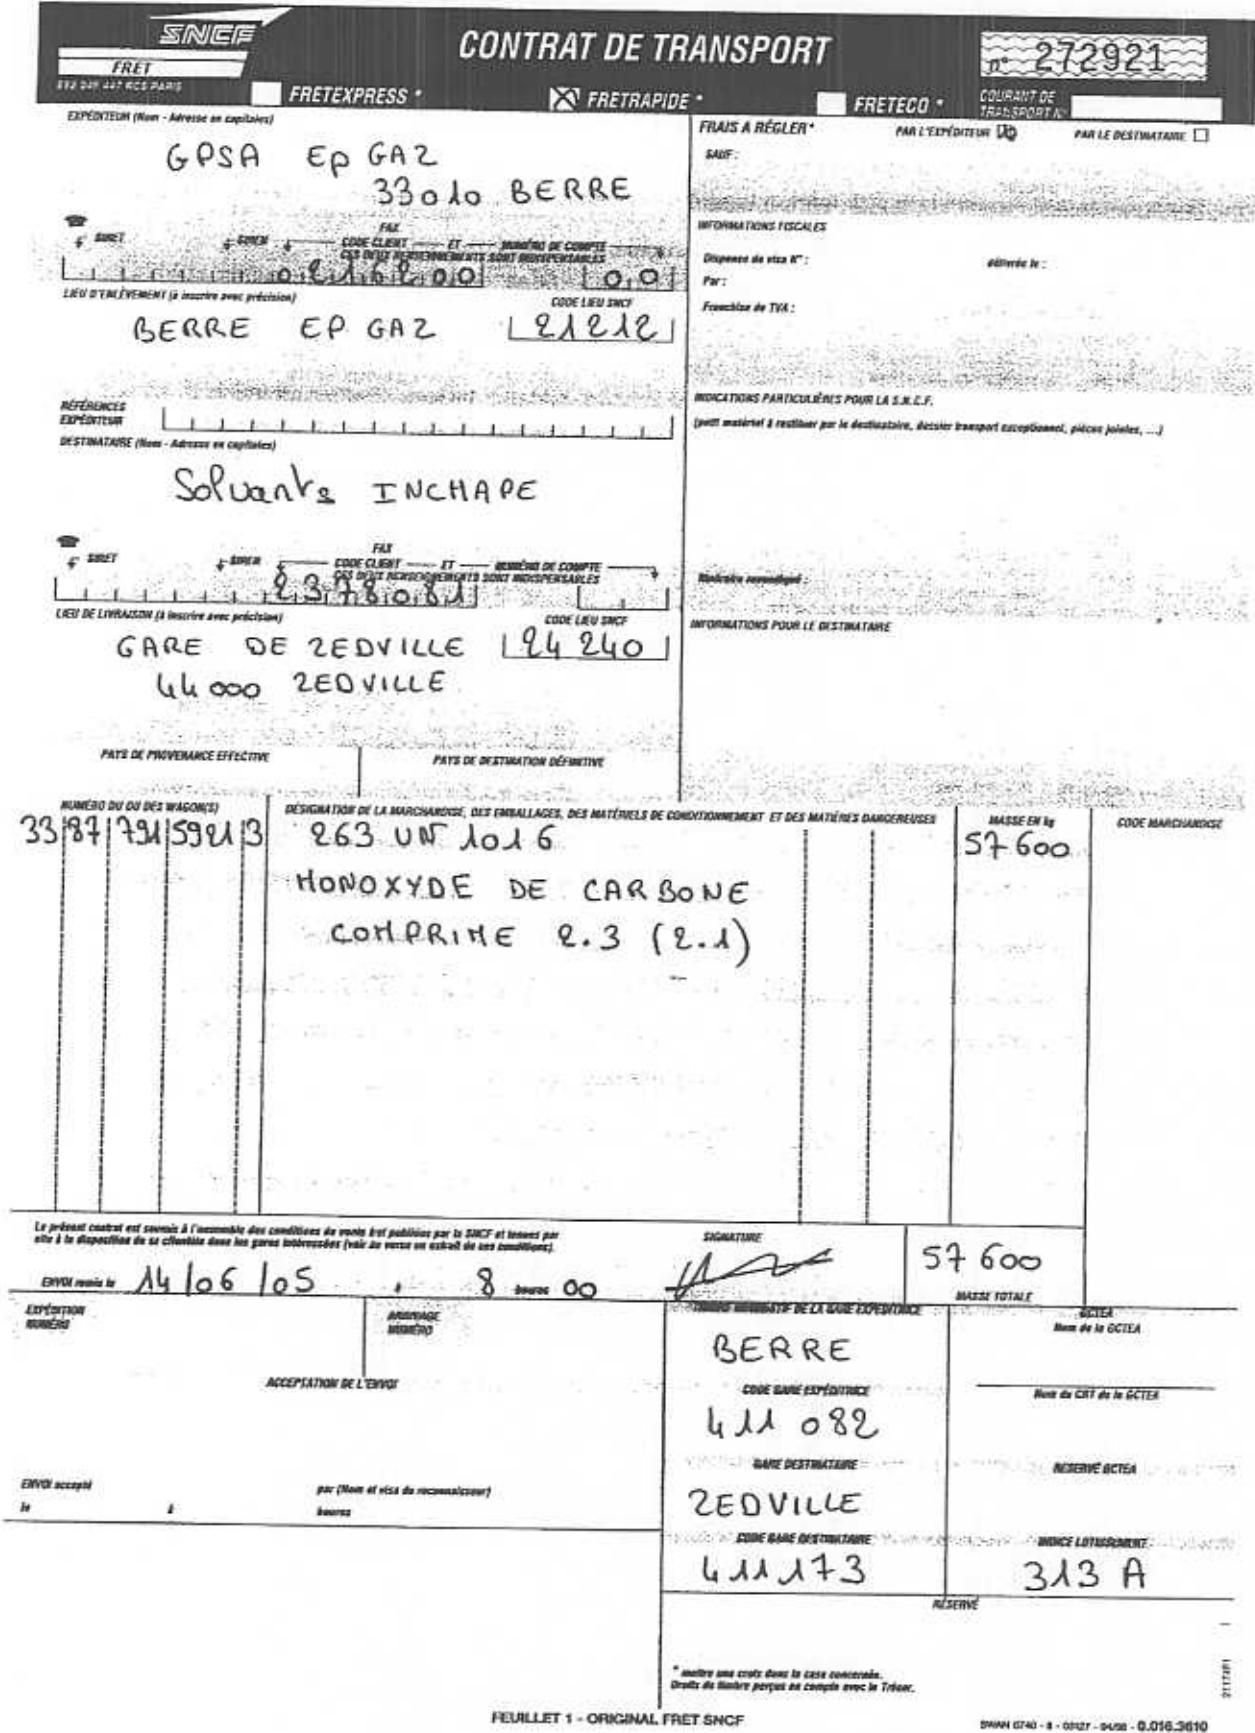 SNCF
FRET
552 049 447 RCS PARIS
CONTRAT DE TRANSPORT
n° 272921
FRETEXPRESS *
FRETRAPIDE *
FRETECO *
COURANT DE
TRANSPORT N°
EXPÉDITEUR (Nom - Adresse en capitales)
GPSA Ep GAZ
33010 BERRE
FAX
SIRET
SIREN
CODE CLIENT ET NUMÉRO DE COMPTE
CES DEUX RENSEIGNEMENTS SONT INDISPENSABLES
0216200 0,0
LIEU D'ENLÈVEMENT (à inscrire avec précision)
CODE LIEU SNCF
BERRE EP GAZ 21212
RÉFÉRENCES
EXPÉDITEUR
DESTINATAIRE (Nom - Adresse en capitales)
Solvants INCHAPE
FAX
SIRET
SIREN
CODE CLIENT ET NUMÉRO DE COMPTE
CES DEUX RENSEIGNEMENTS SONT INDISPENSABLES
2378081
LIEU DE LIVRAISON (à inscrire avec précision)
CODE LIEU SNCF
GARE DE ZEDVILLE 24240
44000 ZEDVILLE
PAYS DE PROVENANCE EFFECTIVE
PAYS DE DESTINATION DÉFINITIVE
FRAIS A RÉGLER*
PAR L'EXPÉDITEUR
PAR LE DESTINATAIRE
SAUF :
INFORMATIONS FISCALES
Dispense de visa N° :
délivrée le :
Par :
Franchise de TVA :
INDICATIONS PARTICULIÈRES POUR LA S.N.C.F.
(petit matériel à restituer par le destinataire, dossier transport exceptionnel, pièces jointes, ...)
Itinéraire revendiqué :
INFORMATIONS POUR LE DESTINATAIRE
NUMÉRO DU OU DES WAGON(S)
DÉSIGNATION DE LA MARCHANDISE, DES EMBALLAGES, DES MATÉRIELS DE CONDITIONNEMENT ET DES MATIÈRES DANGEREUSES
MASSE EN kg
CODE MARCHANDISE
33 87 791 5921 3
263 UN 1016
57 600
MONOXYDE DE CARBONE
COMPRIME 2.3 (2.1)
Le présent contrat est soumis à l'ensemble des conditions de vente fret publiées par la SNCF et tenues par
elle à la disposition de sa clientèle dans les gares intéressées (voir au verso un extrait de ces conditions).
SIGNATURE
57 600
MASSE TOTALE
ENVOI remis le 14/06/05 à 8 heures 00
EXPÉDITION
NUMÉRO
ARRIVAGE
NUMÉRO
ACCEPTATION DE L'ENVOI
ENVOI accepté
par (Nom et visa du reconnaisseur)
le
à
heures
TIMBRE NOMINATIF DE LA GARE EXPÉDITRICE
BERRE
CODE GARE EXPÉDITRICE
411 082
GARE DESTINATAIRE
ZEDVILLE
CODE GARE DESTINATAIRE
411173
GCTEA
Nom de la GCTEA
Nom du CRT de la GCTEA
RÉSERVÉ GCTEA
INDICE LOTISSEMENT
313 A
RÉSERVÉ
* mettre une croix dans la case concernée.
Droits de timbre perçus en compte avec le Trésor.
FEUILLET 1 - ORIGINAL FRET SNCF
0.016.3610